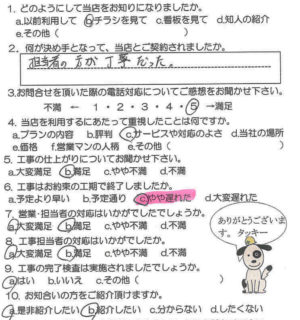 1. どのようにして当店をお知りになりましたか。
a.以前利用して b.チラシを見て c.看板を見て d.知人の紹介
e.その他（ ）
2. 何が決め手となって、当店とご契約されましたか。
担当者の方が丁寧だった。
3.お問合せを頂いた際の電話対応についてご感想をお聞かせ下さい。
不満 ← 1・2・3・4・5 →満足
4. 当店を利用するにあたって重視したことは何ですか。
a.プランの内容 b.評判 c.サービスや対応のよさ d.当社の場所
e.価格 f.営業マンの人柄 e.その他（ ）
5. 工事の仕上がりについてお聞かせ下さい。
a.大変満足 b.満足 c.やや不満 d.不満
6. 工事はお約束の工期で終了しましたか。
a.予定より早い b.予定通り c.やや遅れた d.大変遅れた
7. 営業・担当者の対応はいかがでしたでしょうか。
a.大変満足 b.満足 c.やや不満 d.不満
8. 工事担当者の対応はいかがでしたか。
a.大変満足 b.満足 c.やや不満 d.不満
9. 工事の完了検査は実施されましたでしょうか。
a.はい b.いいえ c.その他（ ）
10. お知合いの方をご紹介頂けますか。
a.是非紹介したい b.紹介したい c.分からない d.したくない
ありがとうございま
す。 タッキー